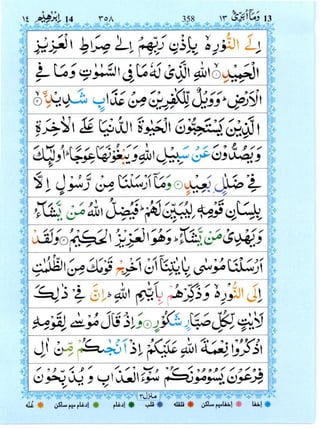 ١٤ اِبْرٰهِيْم 14 ٣٥٨ 358 وَمَآ اُبَرِّئُ ١٣ 13
اِلَى النُّوْرِ ۙ بِاِذْنِ رَبِّهِمْ اِلٰى صِرَاطِ الْعَزِيْزِ
الْحَمِيْدِ ۙ اللّٰهِ الَّذِىْ لَهٗ مَا فِى السَّمٰوٰتِ وَمَا فِى
الْاَرْضِ ؕ وَوَيْلٌ لِّلْكٰفِرِيْنَ مِنْ عَذَابٍ شَدِيْدِ ۙ
الَّذِيْنَ يَسْتَحِبُّوْنَ الْحَيٰوةَ الدُّنْيَا عَلَى الْاٰخِرَةِ
وَيَصُدُّوْنَ عَنْ سَبِيْلِ اللّٰهِ وَيَبْغُوْنَهَا عِوَجًا ؕ اُولٰٓئِكَ
فِىْ ضَلٰلٍۢ بَعِيْدٍ وَمَآ اَرْسَلْنَا مِنْ رَّسُوْلٍ اِلَّا
بِلِسَانِ قَوْمِهٖ لِيُبَيِّنَ لَهُمْ ؕ فَيُضِلُّ اللّٰهُ مَنْ يَّشَآءُ
وَيَهْدِىْ مَنْ يَّشَآءُ ؕ وَهُوَ الْعَزِيْزُ الْحَكِيْمُ وَلَقَدْ
اَرْسَلْنَا مُوْسٰى بِاٰيٰتِنَآ اَنْ اَخْرِجْ قَوْمَكَ مِنَ الظُّلُمٰتِ
اِلَى النُّوْرِ ۙ وَذَكِّرْهُمْ بِاَيّٰىمِ اللّٰهِ ؕ اِنَّ فِىْ ذٰلِكَ
لَاٰيٰتٍ لِّكُلِّ صَبَّارٍ شَكُوْرٍ وَاِذْ قَالَ مُوْسٰى لِقَوْمِهِ
اذْكُرُوْا نِعْمَةَ اللّٰهِ عَلَيْكُمْ اِذْ اَنْجٰىكُمْ مِّنْ اٰلِ
فِرْعَوْنَ يَسُوْمُوْنَكُمْ سُوْٓءَ الْعَذَابِ وَيُذَبِّحُوْنَ
منزل ٣
اخفا اخفا ميم ساكن قلقله قلب ادغام ادغام ميم ساكن غنّه